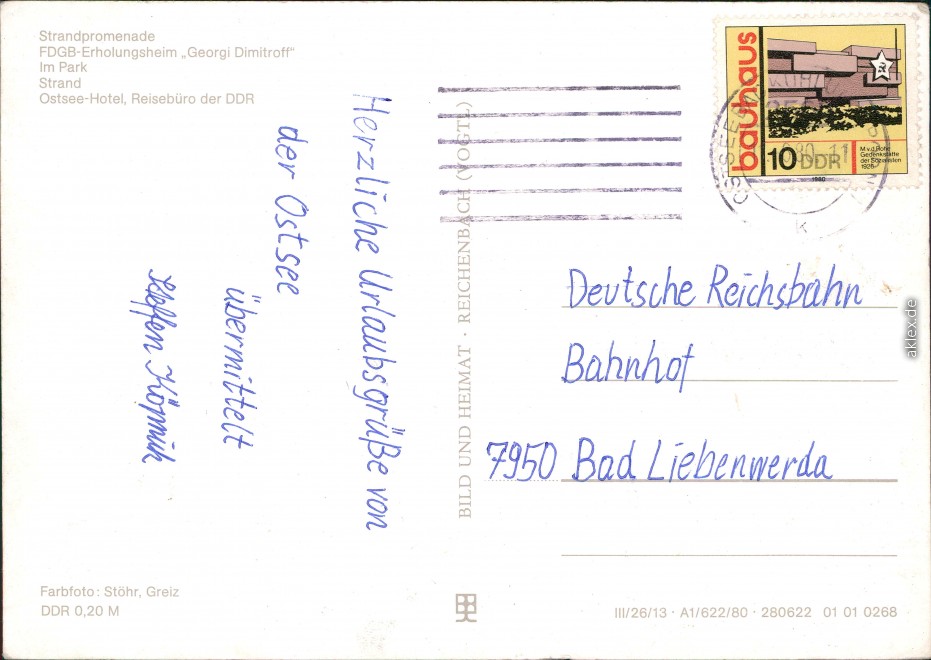 Strandpromenade
FDGB-Erholungsheim „Georgi Dimitroff“
Im Park
Strand
Ostsee-Hotel, Reisebüro der DDR
Herzliche Urlaubsgrüße von
der Ostsee
übermittelt
Steffen
BILD UND HEIMAT · REICHENBACH (VOGTL)
bauhaus
10 DDR
M.v.d.Rohe
Gedenkstätte
der Sozialisten
1926
1980
OSTSEEBAD
K
Deutsche Reichsbahn
Bahnhof
7950 Bad Liebenwerda
aklex.de
Farbfoto: Stöhr, Greiz
DDR 0,20 M
III/26/13 · A1/622/80 · 280622 01 01 0268